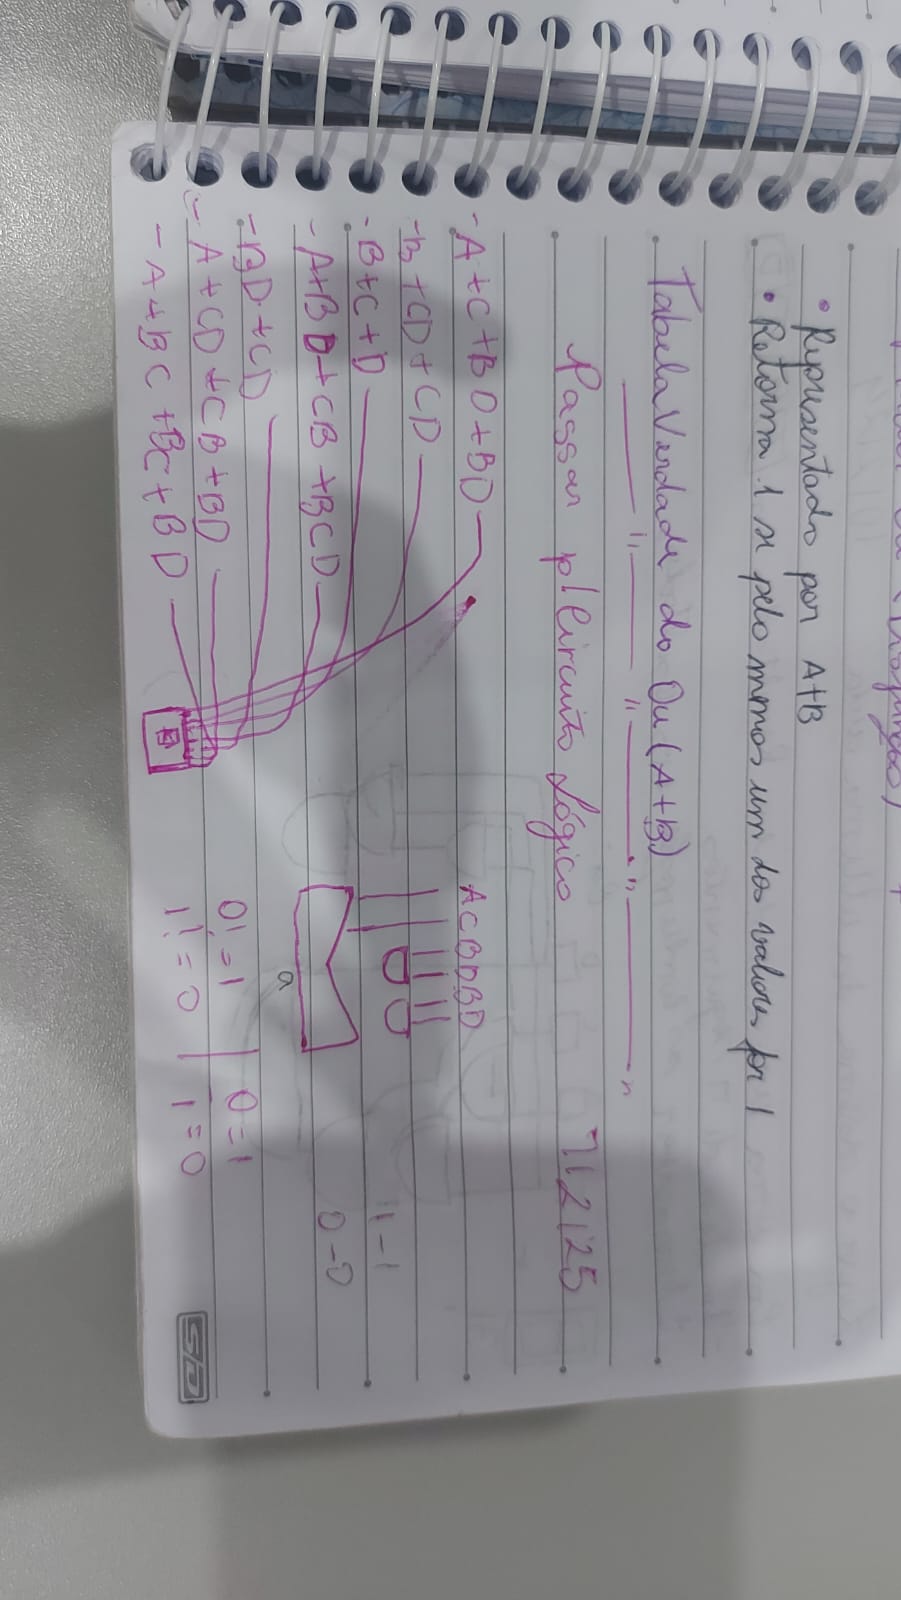 • Representado por A+B
• Retorna 1 se pelo menos um dos valores for 1
Tabela Verdade do Ou (A+B)
Passar p/ Circuito Lógico 7/2/25
- A+C+BD+BD
- B+CD+CD
- B+C+D
- A+BD+CB+BCD
- BD+CD
- A+CD+CB+BD
- A+BC+BC+BD
ACBDBD
a
1-1
0-0
0! = 1
0 = 1
1! = 0
1 = 0
SD